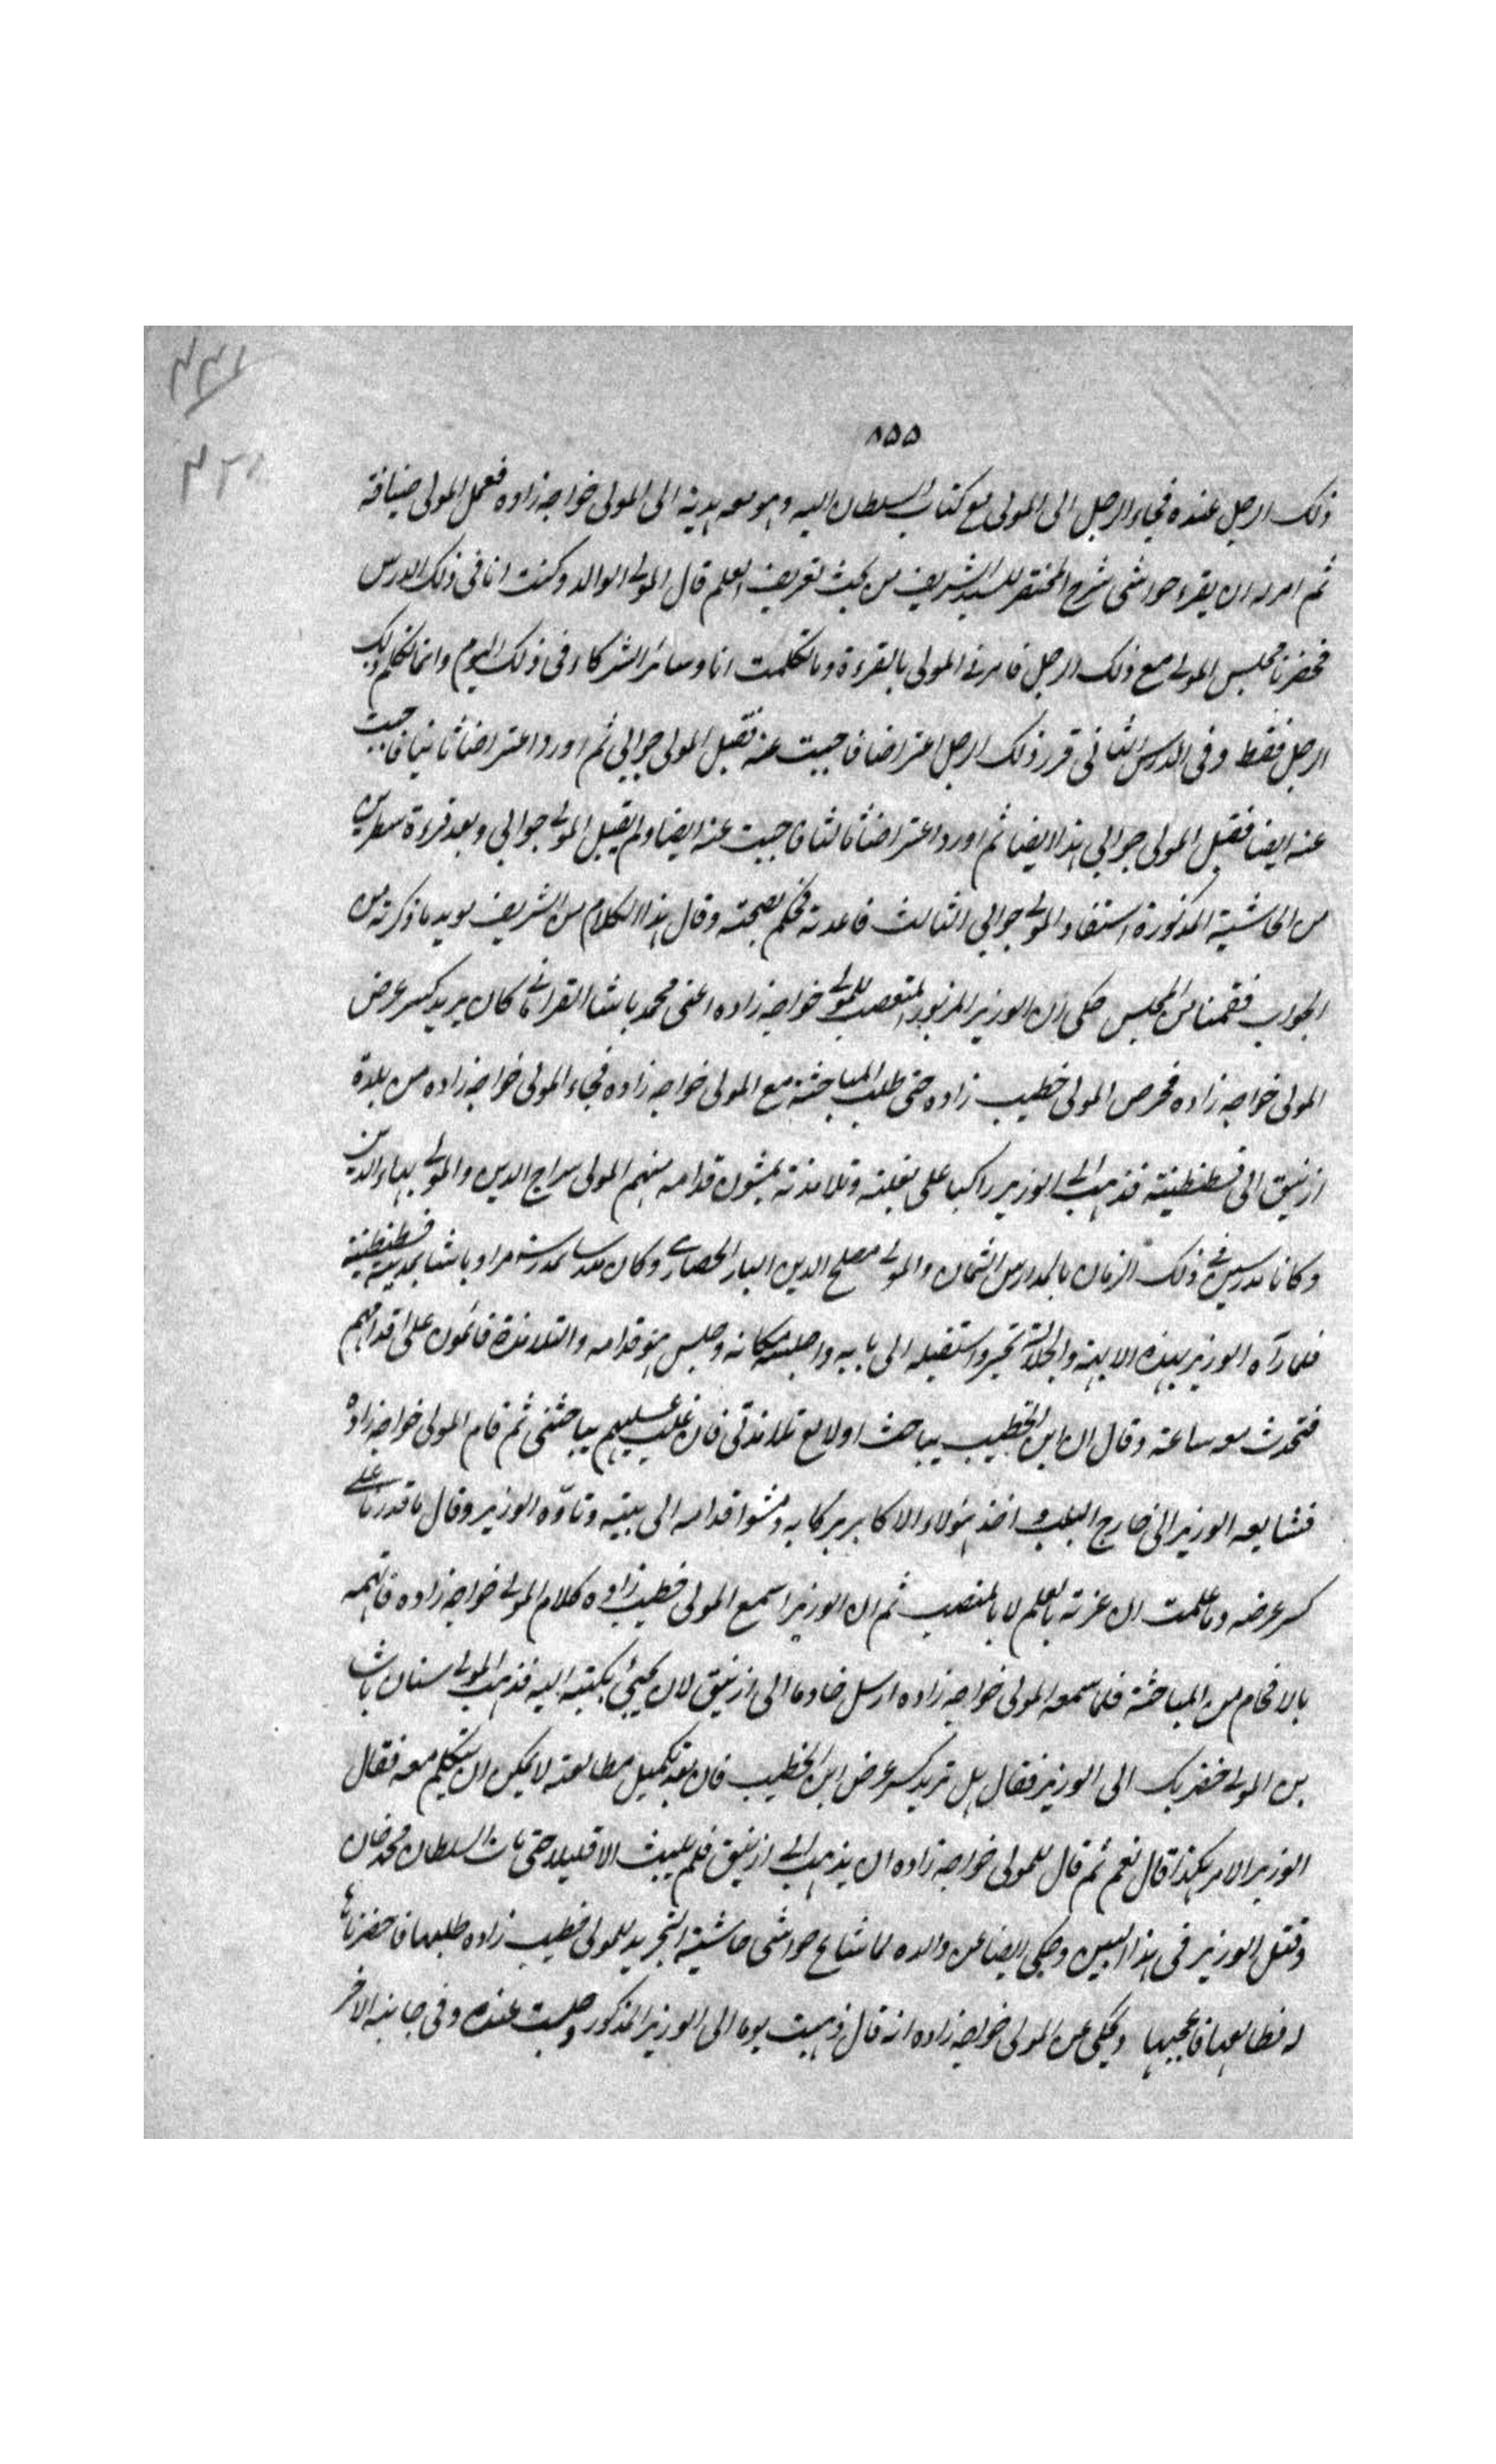 ٨٥٥
ذلك الرجل عنده فجاء الرجل الى المولى مع كتاب السلطان اليه وهو معه هدية الى المولى خواجه زاده فعمل المولى ضيافة
ثم امر له ان يقرء حواشى شرح المختصر للسيد الشريف من بحث تعريف العلم قال المولى الوالد وكنت انا فى ذلك الدرس
فحضرنا مجلس المولى مع ذلك الرجل فامرنى المولى بالقرءة وما تكلمت انا وسائر الشركاء فى ذلك اليوم وانما تكلم ذلك
الرجل فقط وفى الدرس الثانى قرر ذلك الرجل اعتراضا فاجبت عنه فقبل المولى جوابى ثم اورد اعتراضا ثانيا فاجبت
عنه ايضا فقبل المولى جوابى هذا ايضا ثم اورد اعتراضا ثالثا فاجبت عنه ايضا ولم يقبل المولى جوابى وبعد قرءة سطرين
من الحاشية المذكورة استفاد المولى جوابى الثالث فاعدته فحكم بصحته وقال هذا الكلام من الشريف يويد ما ذكرته من
الجواب فقمنا من المجلس حكى ان الوزير المزبور المتعصب للمولى خواجه زاده اعنى محمد باشا القرامانى كان يريد كسر عرض
المولى خواجه زاده فحرص المولى خطيب زاده حتى طلب المباحثة مع المولى خواجه زاده فجاء المولى خواجه زاده من بلدة
ازنيق الى قسطنطينة فذهب الى الوزير راكبا على بغلته وتلامذته يمشون قدامه منهم المولى سراج الدين والمولى بهاء الدين
وكانا مدرسين فى ذلك الزمان بالمدارس الثمان والمولى مصلح الدين اليار الحصارى وكان مدرسا بمدرسة مراد باشا بمدينة قسطنطينية
فلما رآه الوزير بهذه الابهة والجلالة تحير واستقبله الى بابه واجلسه مكانه وجلس هو قدامه والتلامذة قائمون على اقدامهم
فتحدث معه ساعة وقال ان ابن الخطيب يباحث اولا مع تلامذتى فان غلب عليهم يباحثنى ثم قام المولى خواجه زاده
فشايعه الوزير الى خارج الباب واخذ هؤلاء الاكابر بركابه ومشوا قدامه الى بيته وتاوّه الوزير وقال ما قدرنا على
كسر عرضه وما علمت ان عزته بالعلم لا بالمنصب ثم ان الوزير اسمع المولى خطيب زاده كلام المولى خواجه زاده فاتهمه
بالافحام من المباحثة فلما سمعه المولى خواجه زاده ارسل خادما الى ازنيق لان يجئ بكتبه اليه فذهب المولى سنان باشا
بن المولى خضر بك الى الوزير فقال هل تريد كسر عرض ابن الخطيب فان بعد تكميل مطالعته لا يمكن ان يتكلم معه فقال
الوزير الامر هكذا قال نعم ثم قال للمولى خواجه زاده ان يذهب الى ازنيق فلم يلبث الا قليلا حتى مات السلطان محمد خان
وقتل الوزير فى هذا البين وحكى ايضا عن والده لما شاع حواشى حاشية التجريد للمولى خطيب زاده طلبها فاحضرناها
له فطالعها فاعجبها وحكى عن المولى خواجه زاده انه قال ذهبت يوما الى الوزير المذكور وجلست عنده وفى جانبه الاخر